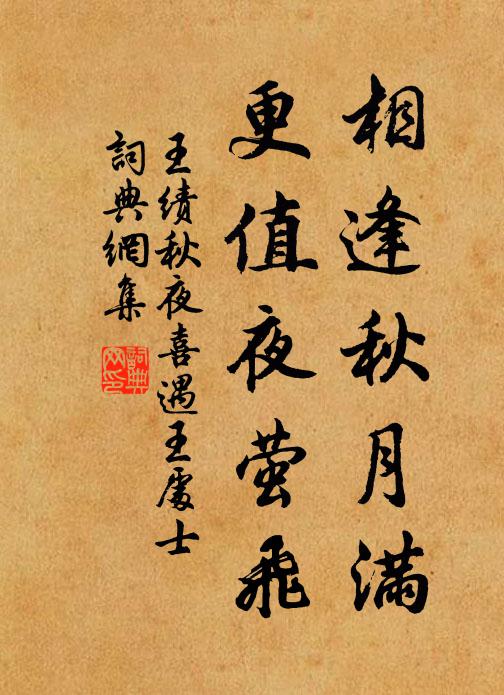 相逢秋月满
更值夜萤飞
王绩秋夜喜遇王處士
詞典網集
詞典網印